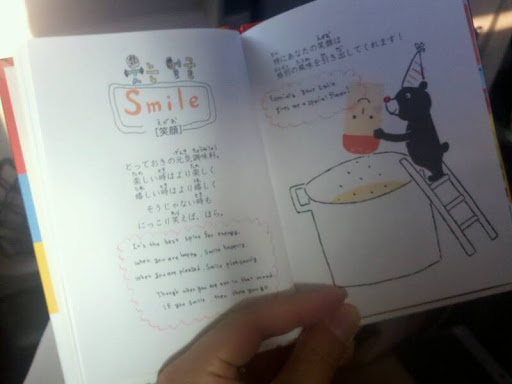 Smile
えがお
[笑顔]
とっておきの元気調味料。
楽しい時はより楽しく
嬉しい時はより嬉しく
そうじゃない時も
にっこり笑えば、ほら。
It's the best spice for energy.
When you are happy, smile happily.
When you are pleased, smile pleasantly.
Though when you are not in that mood,
if you smile, then there you go.
特にあなたの笑顔は
特別の風味を引き出してくれます!
Especially your smile
gives me a special flavor!